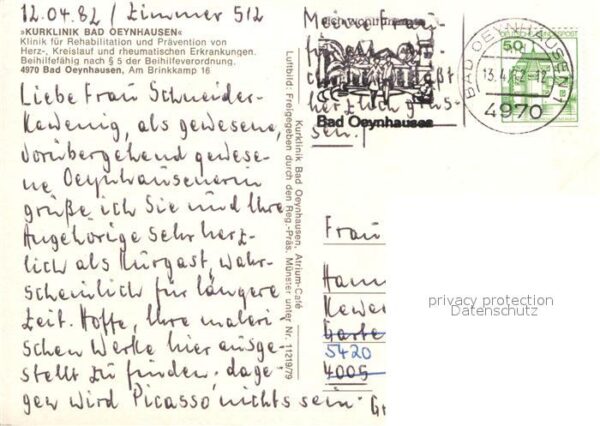 12.04.82 / Zimmer 512
»KURKLINIK BAD OEYNHAUSEN«
Klinik für Rehabilitation und Prävention von
Herz-, Kreislauf und rheumatischen Erkrankungen.
Beihilfefähig nach § 5 der Beihilfeverordnung.
4970 Bad Oeynhausen, Am Brinkkamp 16
Liebe Frau Schneider-
Kewenig, als gewesene,
vorübergehend gewese-
ne Oeynhausenerin
grüße ich Sie und Ihre
Angehörige sehr herz-
lich als Kurgast, wahr-
scheinlich für längere
Zeit. Hoffe, Ihre maleri-
schen Werke hier ausge-
stellt zu finden. dage-
gen wird Picasso nichts sein.
Kurklinik Bad Oeynhausen, Atrium-Café
Luftbild: Freigegeben durch den Reg.-Präs. Münster unter Nr. 11219/79
Meine Frau
läßt
herzlich grüs-
sen!
Bad Oeynhausen
BAD OEYNHAUSEN 1
13.4.82-12
4970
50
Frau
Hann
Kewe
Garte
5420
4005
privacy protection
Datenschutz